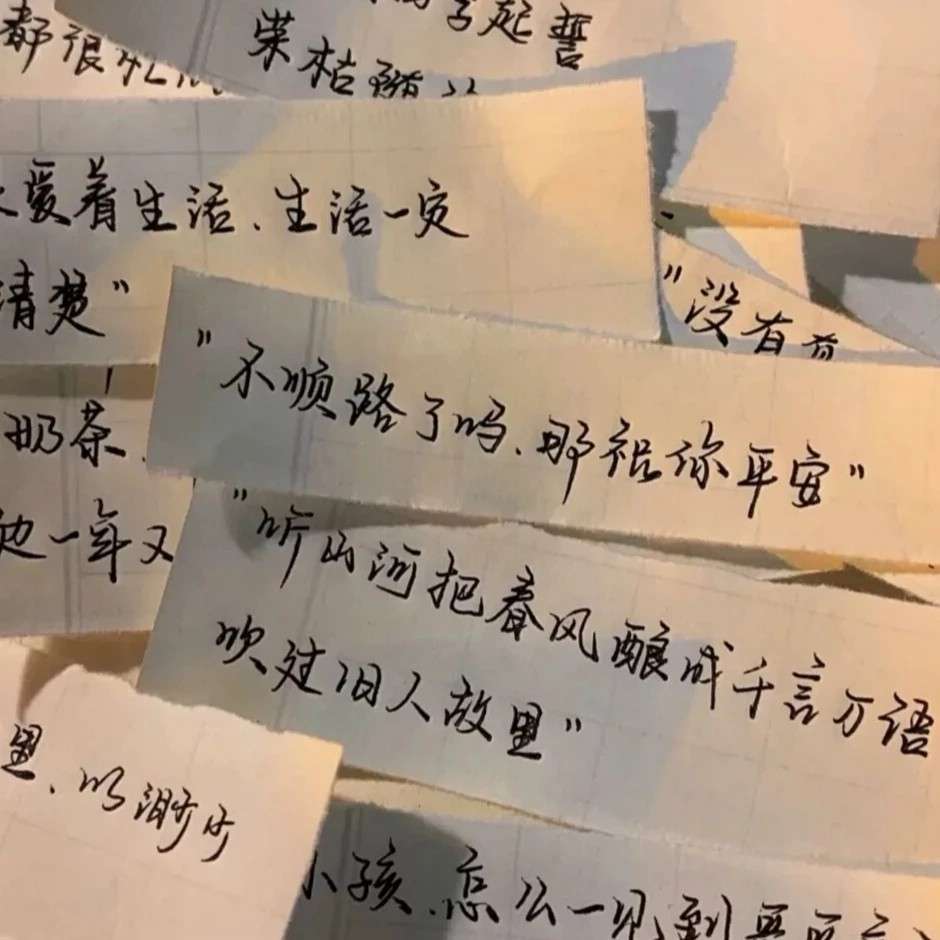 都很
起誓
荣枯
爱着生活、生活一定
清楚”
“没有
“不顺路了吗、那祝你平安”
奶茶、
边一年又
“听山河把春风酿成千言万语
吹过旧人故里”
里、以渺小
小孩、怎么一见到